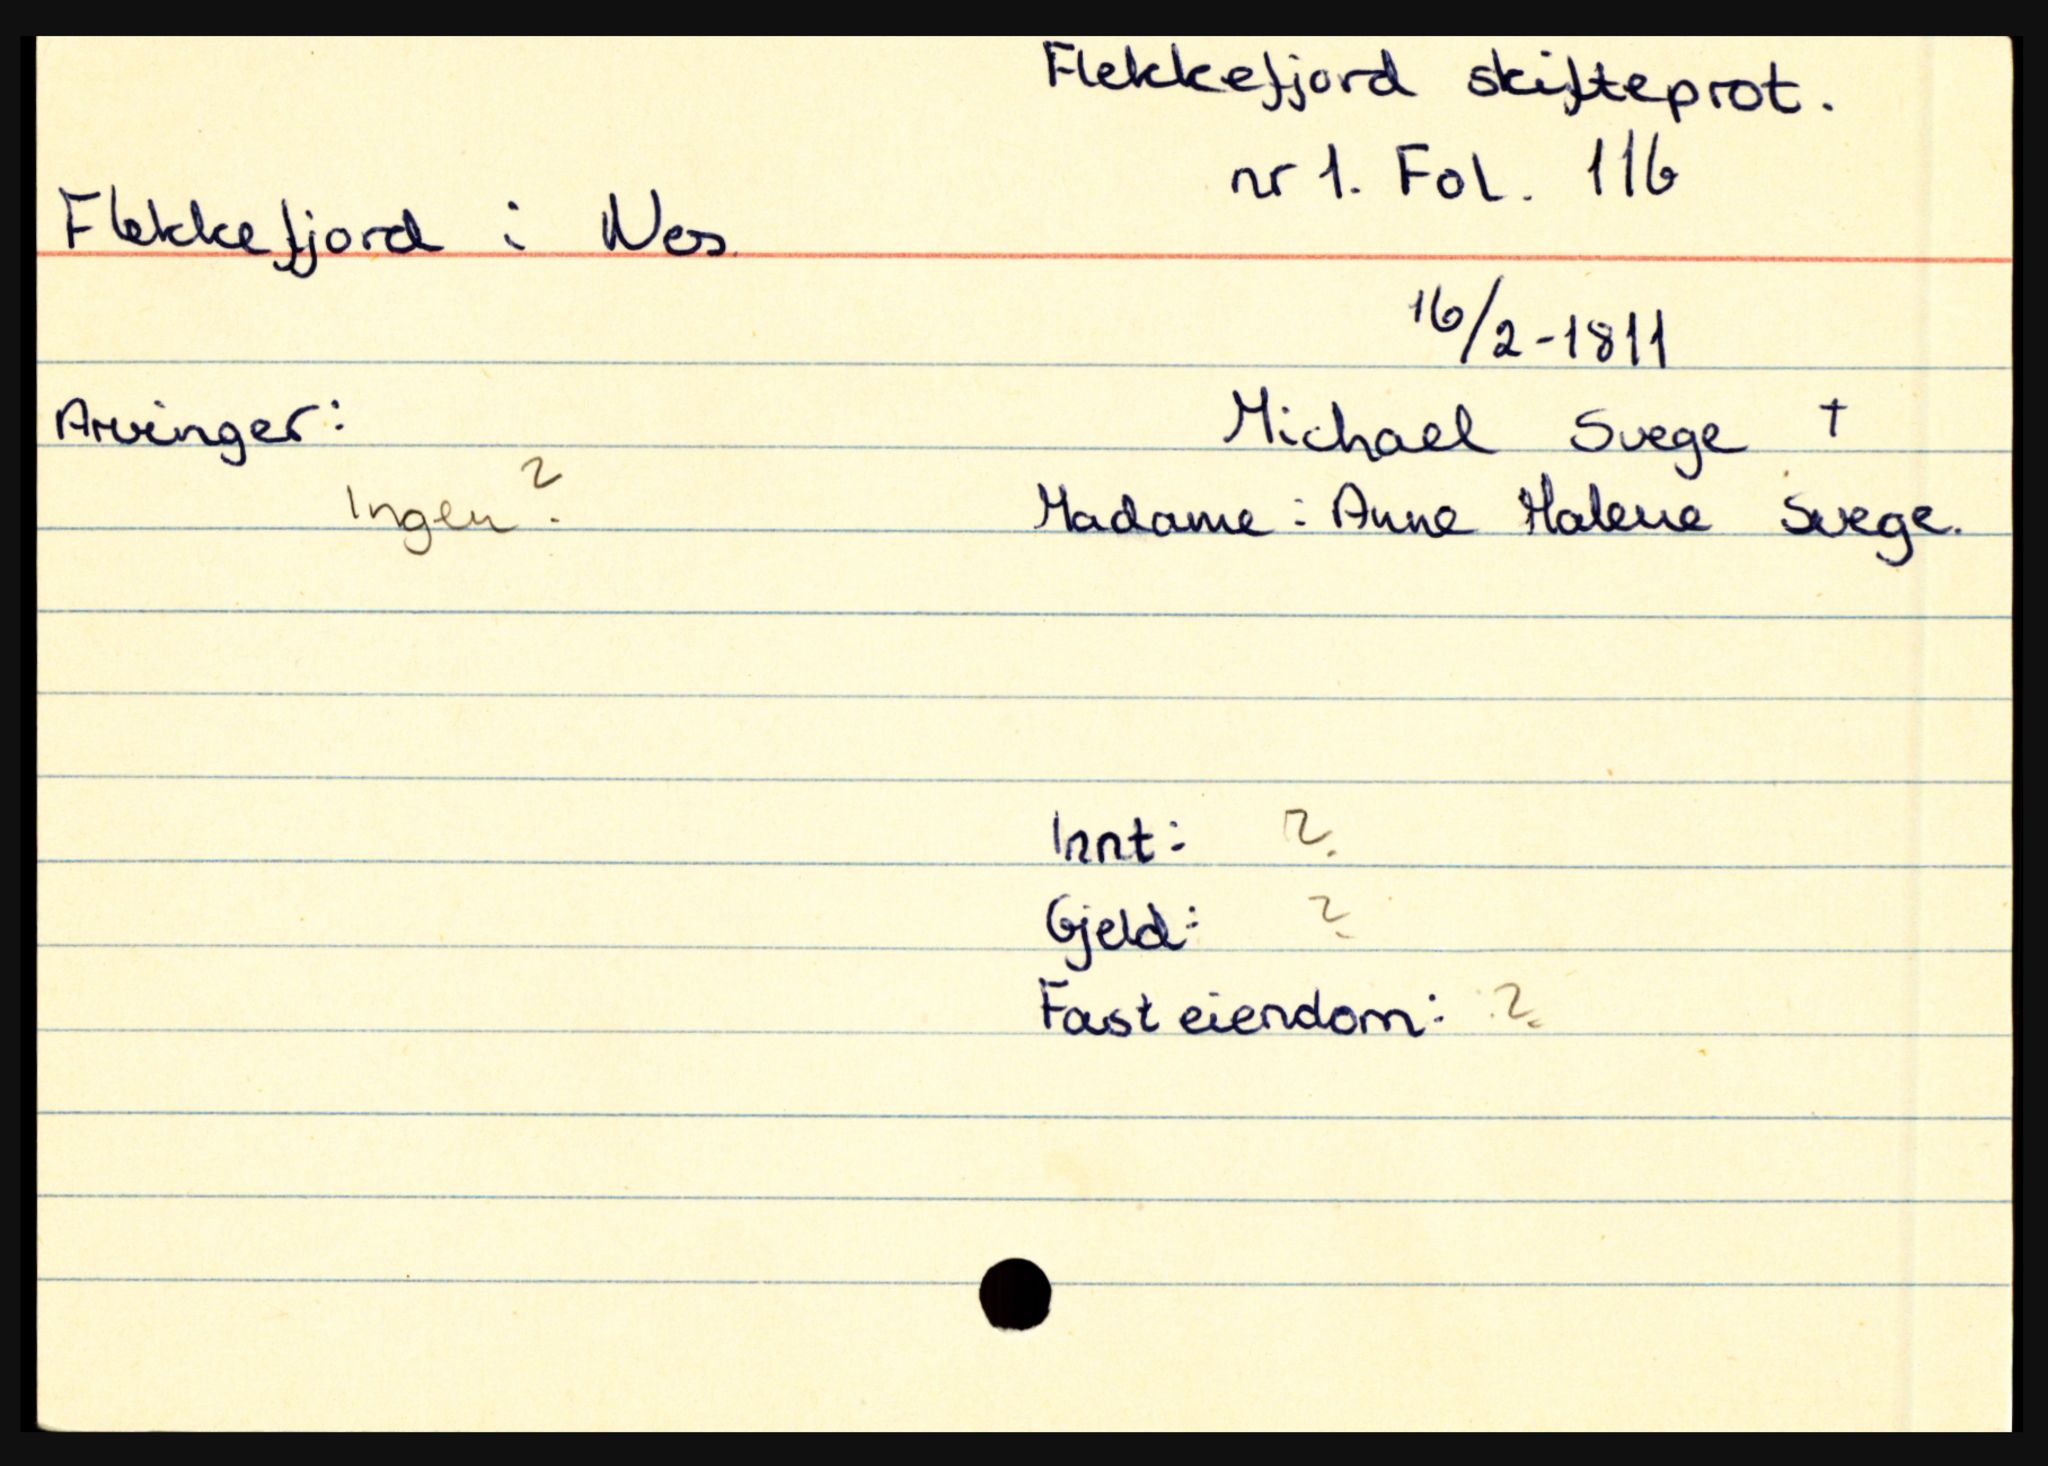 Flekkefjord skifteprot.
nr 1. Fol. 116
Flekkefjord i Nes.
16/2-1811
Arvinger:
Michael Svege †
Ingen?
Madame: Anne Malene Svege.
Innt: ?
Gjeld: ?
Fast eiendom: ?